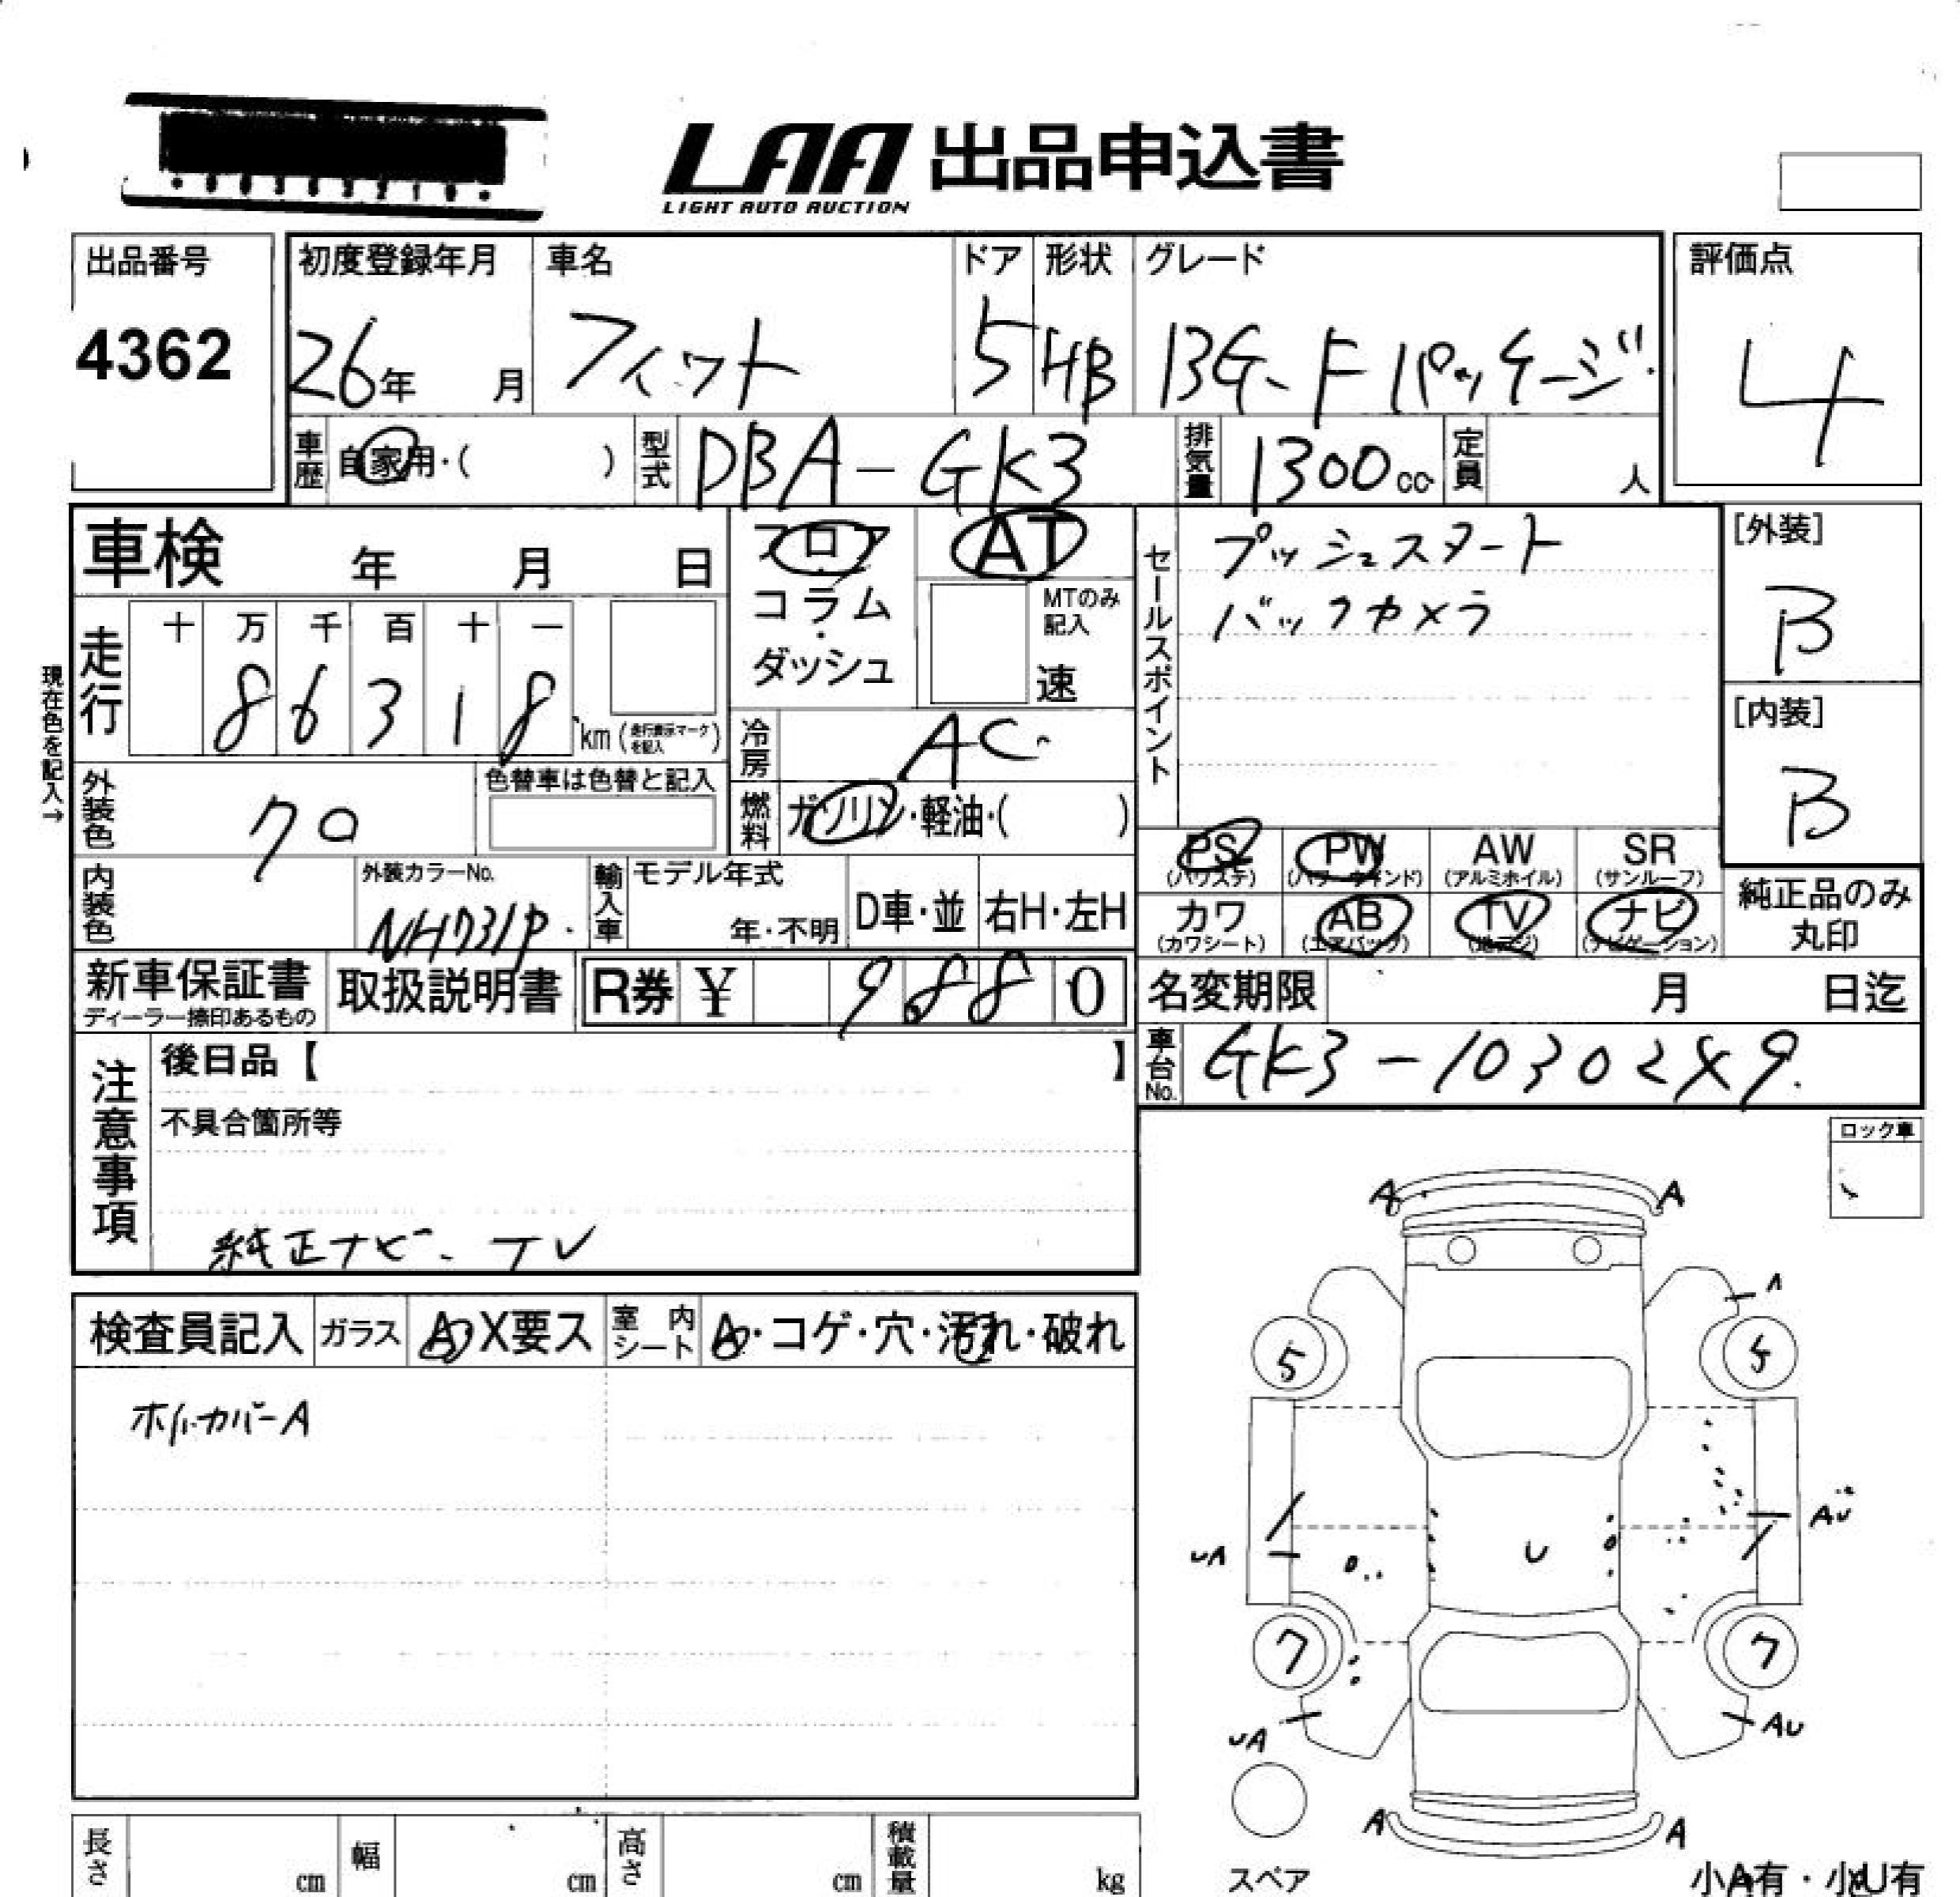 LAA 出品申込書
LIGHT AUTO AUCTION
出品番号
4362
初度登録年月
26年 月
車名
フィット
ドア
5
形状
HB
グレード
13G-Fパッケージ
評価点
4
車歴 自家用・( )
型式 DBA-GK3
排気量 1300cc
定員 人
車検 年 月 日
フロア・コラム・ダッシュ
AT
MTのみ記入
速
セールスポイント
プッシュスタート
バックカメラ
[外装]
B
[内装]
B
現在色を記入→
走行
十 万 千 百 十 一
8 6 3 1 8 km (走行表示マークを記入)
冷房 AC
外装色 クロ
色替車は色替と記入
燃料 ガソリン・軽油・( )
内装色
外装カラーNo.
NH731P
輸入車
モデル年式
年・不明
D車・並
右H・左H
PS (パワステ)
PW (パワーウインド)
AW (アルミホイル)
SR (サンルーフ)
カワ (カワシート)
AB (エアバッグ)
TV (地デジ)
ナビ (ナビゲーション)
純正品のみ丸印
新車保証書
ディーラー捺印あるもの
取扱説明書
R券 ¥ 9880
名変期限 月 日迄
車台No. GK3-10302
注意事項
後日品【 】
不具合箇所等
純正ナビ・TV
ロック車
検査員記入
ガラス A・X要ス
室内シート A・コゲ・穴・汚れ・破れ
ホイルカバーA
A A
A
5 5
UA U AU
7 7
UA AU
A A
スペア
小A有・小U有
長さ cm
幅 cm
高さ cm
積載量 kg